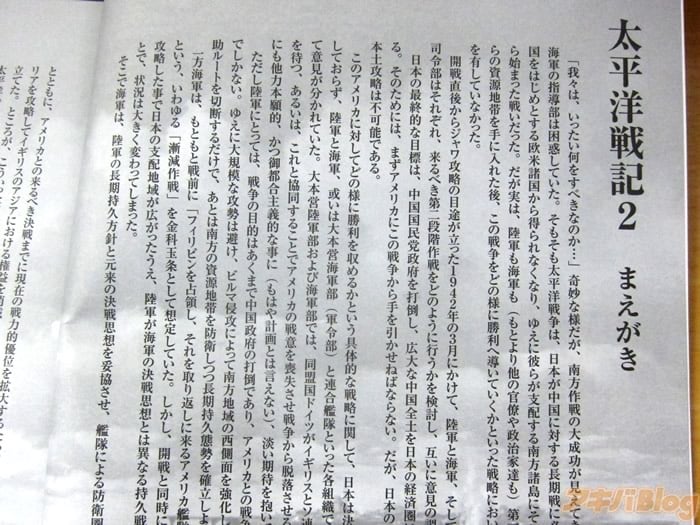 太平洋戦記2 まえがき
「我々は、いったい何をすべきなのか…」奇妙な様だが、南方作戦の大成功が見えて
海軍の指導部は困惑していた。そもそも太平洋戦争は、日本が中国に対する長期戦に必
国をはじめとする欧米諸国から得られなくなり、ゆえに彼らが支配する南方諸島にそ
ら始まった戦いだった。だが実は、陸軍も海軍も（もとより他の官僚や政治家達も）第
らの資源地帯を手に入れた後、この戦争をどの様に勝利へ導いていくかといった戦略にお
を有していなかった。
開戦直後からジャワ攻略の目途が立った1942年の3月にかけて、陸軍と海軍、そし
司令部はそれぞれ、来るべき第二段階作戦をどのように行うかを検討し、互いに意見の調
日本の最終的な目標は、中国国民党政府を打倒し、広大な中国全土を日本の経済圏
る。そのためには、まずアメリカにこの戦争から手を引かせねばならない。だが、日本の
本土攻略は不可能である。
このアメリカに対してどの様に勝利を収めるかという具体的な戦略に関して、日本は決
しておらず、陸軍と海軍、或いは大本営海軍部（軍令部）と連合艦隊といった各組織で
て意見が分かれていた。大本営陸軍部および海軍部では、同盟国ドイツがイギリスとソ連
を待つ、あるいは、これと協同することでアメリカの戦意を喪失させ戦争から脱落させる
にも他力本願的、かつ御都合主義的な事に（もはや計画とは言えない）、淡い期待を抱い
ただし陸軍にとっては、戦争の目的はあくまで中国政府の打倒であり、アメリカとの戦争
でしかない。ゆえに大規模な攻勢は避け、ビルマ侵攻によって南方地域の西側面を強化し
助ルートを切断するだけで、あとは南方の資源地帯を防衛しつつ長期持久態勢を確立しよ
一方海軍は、もともと戦前に「フィリピンを占領し、それを取り返しに来るアメリカ艦
という、いわゆる「漸減作戦」を金科玉条として想定していた。しかし、開戦と同時に
攻略した事で日本の支配地域が広がったうえ、陸軍が海軍の決戦思想とは異なる持久戦
とで、状況は大きく変わってしまった。
そこで海軍は、陸軍の長期持久方針と元来の決戦思想を妥協させ、艦隊による防衛圏
とともに、アメリカとの来るべき決戦までに現在の戦力的優位を拡大するた
リアを攻略してイギリスのアジアにおける権益を消滅
立てた。ところが、こういった
アキバBlog